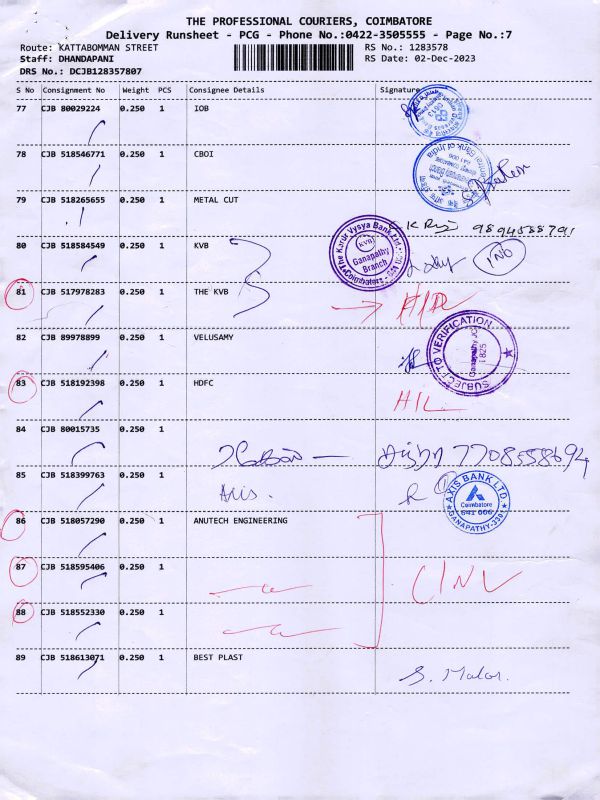 THE PROFESSIONAL COURIERS, COIMBATORE
Delivery Runsheet - PCG - Phone No.:0422-3505555 - Page No.:7
Route: KATTABOMMAN STREET RS No.: 1283578
Staff: DHANDAPANI RS Date: 02-Dec-2023
DRS No.: DCJB128357807
S No Consignment No Weight PCS Consignee Details Signature
77 CJB 80029224 0.250 1 IOB
78 CJB 518546771 0.250 1 CBOI
Central Bank of India
79 CJB 518265655 0.250 1 METAL CUT 9894588791
80 CJB 518584549 0.250 1 KVB
The Karur Vysya Bank Ltd.
KVB
Ganapathy
Branch
Coimbatore
81 CJB 517978283 0.250 1 THE KVB
82 CJB 89978899 0.250 1 VELUSAMY
SUBJECT TO VERIFICATION
1825
83 CJB 518192398 0.250 1 HDFC
84 CJB 80015735 0.250 1 7708558694
85 CJB 518399763 0.250 1 Axis.
AXIS BANK LTD
Coimbatore
641 006
GANAPATHY
86 CJB 518057290 0.250 1 ANUTECH ENGINEERING
87 CJB 518595406 0.250 1
88 CJB 518552330 0.250 1
89 CJB 518613071 0.250 1 BEST PLAST S. Malar.